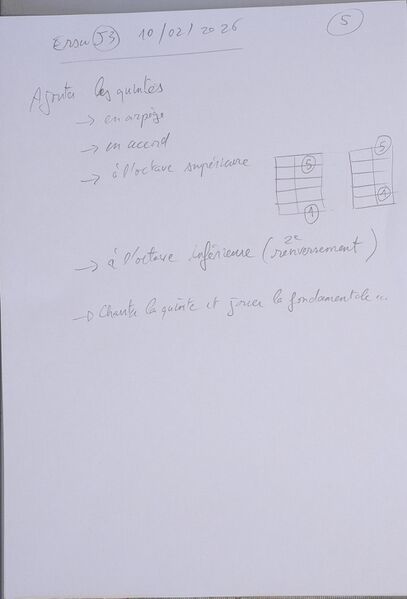 Ersu J3 10/02/2026
5
Ajouter les quintes
→ en arpège
→ en accord
→ à l'octave supérieure
5 5
1 1
→ à l'octave inférieure (2e renversement)
→ Chanter la quinte et jouer la fondamentale